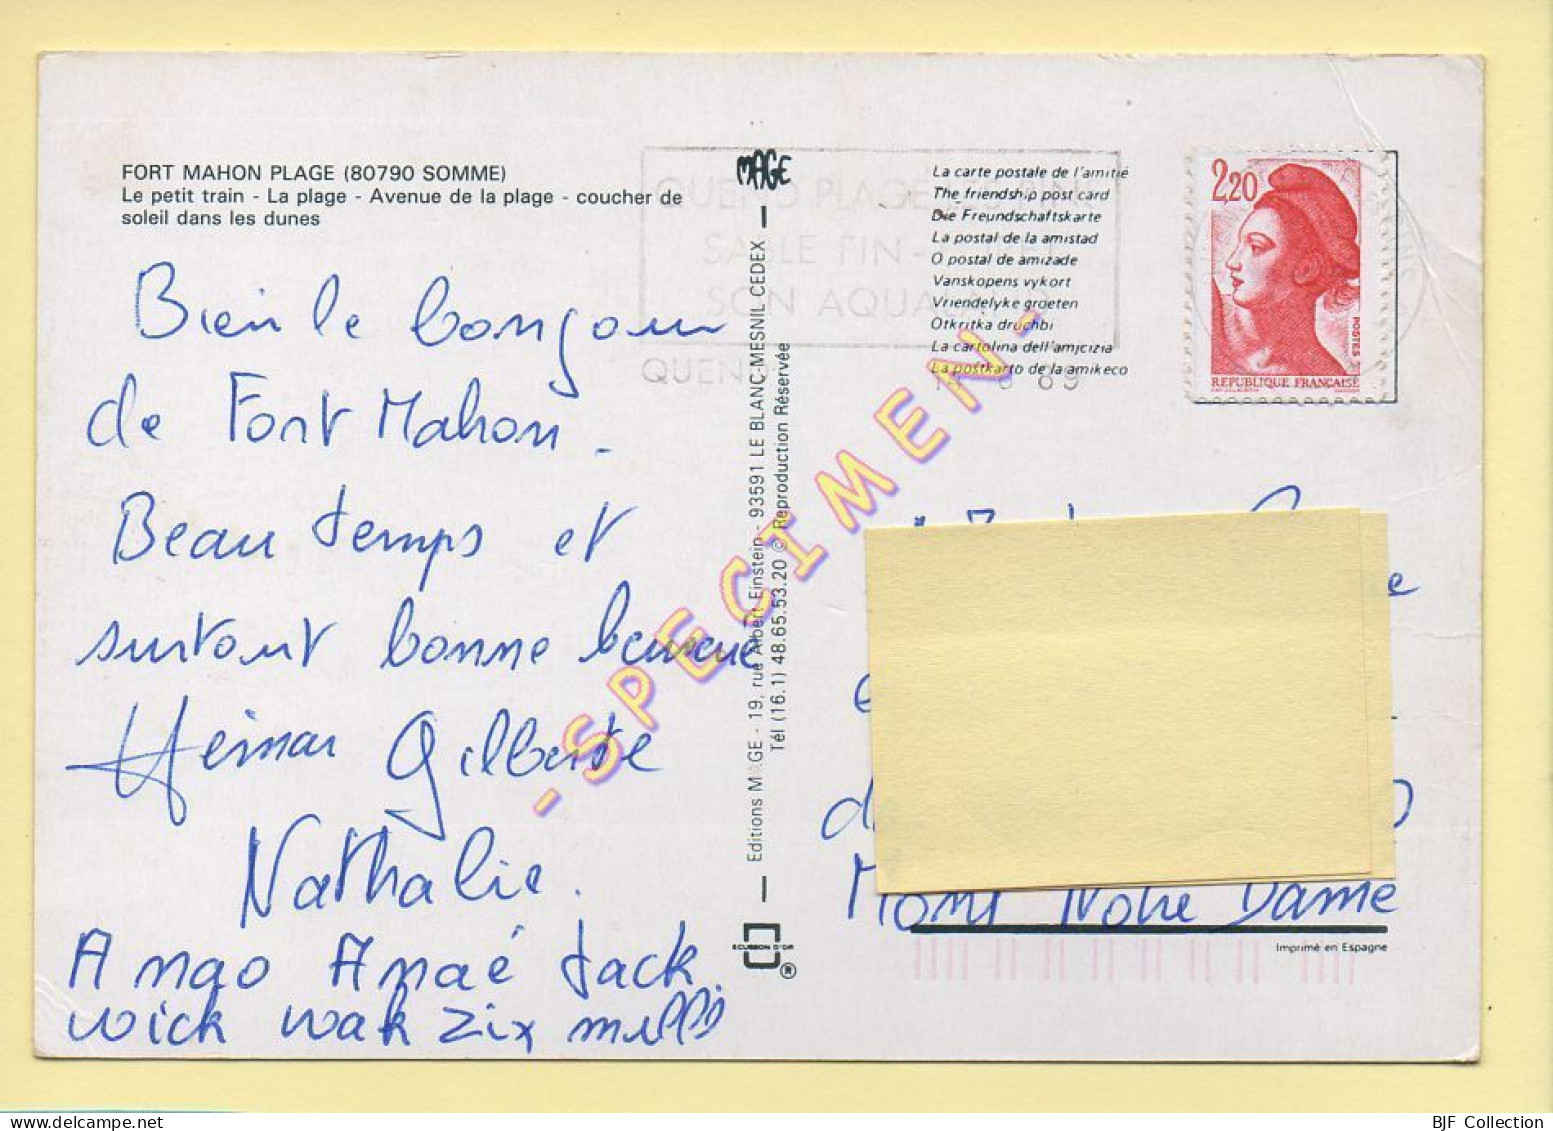 FORT MAHON PLAGE (80790 SOMME)
Le petit train - La plage - Avenue de la plage - coucher de
soleil dans les dunes
Bien le bonjour
de Fort Mahon.
Beau temps et
surtout bonne
Gilberte
Nathalie.
Amao Amaé Jack
wick wak zix
MAGE
Editions MAGE - 19, rue Albert Einstein - 93591 LE BLANC-MESNIL CEDEX
Tél (16.1) 48.65.53.20 © Reproduction Réservée
ECUSSON D'OR
®
QUEND PLAGE
SABLE FIN -
SON AQUA
QUEN
La carte postale de l'amitié
The friendship post card
Die Freundschaftskarte
La postal de la amistad
O postal de amizade
Vanskopens vykort
Vriendelyke groeten
Otkritka druchbi
La cartolina dell'amjcizia
La postkarto de la amikeco
2,20
POSTES
REPUBLIQUE FRANÇAISE
- SPECIMEN -
Mont Notre Dame
Imprimé en Espagne
BJF Collection